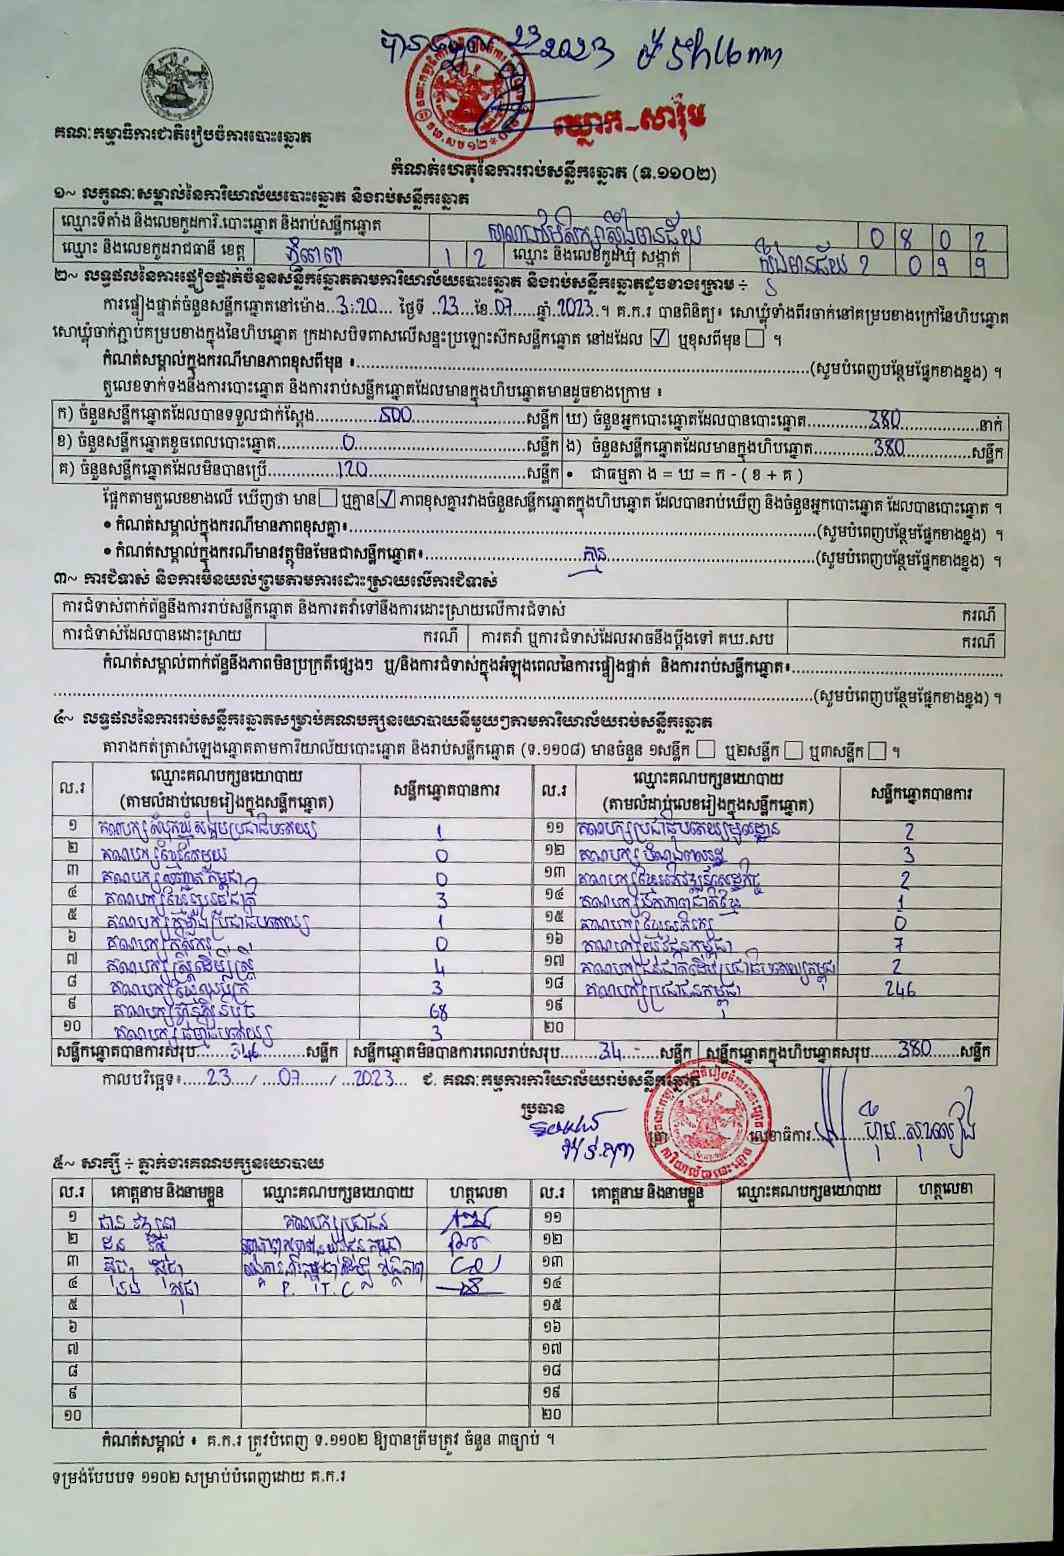 បានទទួល 23 2023
ឃ្លោក-សារ៉ុម
គណៈកម្មាធិការជាតិរៀបចំការបោះឆ្នោត
កំណត់ហេតុនៃការរាប់សន្លឹកឆ្នោត (ទ.១១០២)
១~ លក្ខណៈសម្គាល់នៃការិយាល័យបោះឆ្នោត និងរាប់សន្លឹកឆ្នោត
ឈ្មោះទីតាំង និងលេខកូដការិ.បោះឆ្នោត និងរាប់សន្លឹកឆ្នោត 0 8 0 2
ឈ្មោះ និងលេខកូដរាជធានី ខេត្ត ភ្នំពេញ 1 2 ឈ្មោះ និងលេខកូដឃុំ សង្កាត់ ស្ទឹងមានជ័យ 2 0 9 9
២~ លទ្ធផលនៃការផ្ទៀងផ្ទាត់ចំនួនសន្លឹកឆ្នោតតាមការិយាល័យបោះឆ្នោត និងរាប់សន្លឹកឆ្នោតដូចខាងក្រោម ៖
ការផ្ទៀងផ្ទាត់ចំនួនសន្លឹកឆ្នោតនៅម៉ោង 3:20 ថ្ងៃទី 23 ខែ 07 ឆ្នាំ 2023 ។ គ.ក.រ បានពិនិត្យ៖ សោឃ្លុំទាំងពីរចាក់នៅគម្របខាងក្រៅនៃហិបឆ្នោត
សោឃ្លុំចាក់ភ្ជាប់គម្របខាងក្នុងនៃហិបឆ្នោត ក្រដាសបិទពាសលើសន្ទះប្រឡោះស៊កសន្លឹកឆ្នោត នៅដដែល ☑ ឬខុសពីមុន ☐ ។
កំណត់សម្គាល់ក្នុងករណីមានភាពខុសពីមុន ៖ (សូមបំពេញបន្ថែមផ្នែកខាងខ្នង) ។
តួលេខទាក់ទងនឹងការបោះឆ្នោត និងការរាប់សន្លឹកឆ្នោតដែលមានក្នុងហិបឆ្នោតមានដូចខាងក្រោម ៖
ក) ចំនួនសន្លឹកឆ្នោតដែលបានទទួលជាក់ស្តែង 500 សន្លឹក ឃ) ចំនួនអ្នកបោះឆ្នោតដែលបានបោះឆ្នោត 380 នាក់
ខ) ចំនួនសន្លឹកឆ្នោតខូចពេលបោះឆ្នោត 0 សន្លឹក ង) ចំនួនសន្លឹកឆ្នោតដែលមានក្នុងហិបឆ្នោត 380 សន្លឹក
គ) ចំនួនសន្លឹកឆ្នោតដែលមិនបានប្រើ 120 សន្លឹក • ជាធម្មតា ង = ឃ = ក - ( ខ + គ )
ផ្អែកតាមតួលេខខាងលើ ឃើញថា មាន ☐ ឬគ្មាន ☑ ភាពខុសគ្នារវាងចំនួនសន្លឹកឆ្នោតក្នុងហិបឆ្នោត ដែលបានរាប់ឃើញ និងចំនួនអ្នកបោះឆ្នោត ដែលបានបោះឆ្នោត ។
• កំណត់សម្គាល់ក្នុងករណីមានភាពខុសគ្នា៖ (សូមបំពេញបន្ថែមផ្នែកខាងខ្នង) ។
• កំណត់សម្គាល់ក្នុងករណីមានវត្ថុមិនមែនជាសន្លឹកឆ្នោត៖ គ្មាន (សូមបំពេញបន្ថែមផ្នែកខាងខ្នង) ។
៣~ ការជំទាស់ និងការមិនយល់ព្រមតាមការដោះស្រាយលើការជំទាស់
ការជំទាស់ពាក់ព័ន្ធនឹងការរាប់សន្លឹកឆ្នោត និងការតវ៉ាទៅនឹងការដោះស្រាយលើការជំទាស់ ករណី
ការជំទាស់ដែលបានដោះស្រាយ ករណី ការតវ៉ា ឬការជំទាស់ដែលអាចនឹងប្តឹងទៅ គឃ.សប ករណី
កំណត់សម្គាល់ពាក់ព័ន្ធនឹងភាពមិនប្រក្រតីផ្សេងៗ ឬ/និងការជំទាស់ក្នុងអំឡុងពេលនៃការផ្ទៀងផ្ទាត់ និងការរាប់សន្លឹកឆ្នោត៖
(សូមបំពេញបន្ថែមផ្នែកខាងខ្នង) ។
៤~ លទ្ធផលនៃការរាប់សន្លឹកឆ្នោតសម្រាប់គណបក្សនយោបាយនីមួយៗតាមការិយាល័យរាប់សន្លឹកឆ្នោត
តារាងកត់ត្រាសំឡេងឆ្នោតតាមការិយាល័យបោះឆ្នោត និងរាប់សន្លឹកឆ្នោត (ទ.១១០៨) មានចំនួន ១សន្លឹក ☐ ឬ២សន្លឹក ☐ ឬ៣សន្លឹក ☐ ។
ល.រ ឈ្មោះគណបក្សនយោបាយ (តាមលំដាប់លេខរៀងក្នុងសន្លឹកឆ្នោត) សន្លឹកឆ្នោតបានការ ល.រ ឈ្មោះគណបក្សនយោបាយ (តាមលំដាប់លេខរៀងក្នុងសន្លឹកឆ្នោត) សន្លឹកឆ្នោតបានការ
១ គណបក្សសំបុកឃ្មុំសង្គមប្រជាធិបតេយ្យ 1 ១១ គណបក្សប្រជាធិបតេយ្យមូលដ្ឋាន 2
២ គណបក្សខ្មែរតែមួយ 0 ១២ គណបក្ស 3
៣ គណបក្ស កម្ពុជា 0 ១៣ គណបក្ស 2
៤ គណបក្សខ្មែរ ជាតិ 3 ១៤ គណបក្សឯកភាពជាតិខ្មែរ 1
៥ គណបក្ស ប្រជាធិបតេយ្យ 1 ១៥ គណបក្សខ្មែរអភិរក្ស 0
៦ គណបក្សកសិករ 0 ១៦ គណបក្សយុវជនកម្ពុជា 7
៧ គណបក្សស្ត្រីដើម្បីស្ត្រី 4 ១៧ គណបក្សជនជាតិដើមប្រជាធិបតេយ្យកម្ពុជា 2
៨ គណបក្សខ្មែរឈប់ក្រ 3 ១៨ គណបក្សប្រជាជនកម្ពុជា 246
៩ គណបក្សហ្វ៊ុនស៊ិនប៉ិច 68 ១៩
១០ គណបក្ស 3 ២០
សន្លឹកឆ្នោតបានការសរុប 346 សន្លឹក សន្លឹកឆ្នោតមិនបានការពេលរាប់សរុប 34 សន្លឹក សន្លឹកឆ្នោតក្នុងហិបឆ្នោតសរុប 380 សន្លឹក
កាលបរិច្ឆេទ៖ 23 / 07 / 2023 ជ. គណៈកម្មការការិយាល័យរាប់សន្លឹកឆ្នោត
ប្រធាន
ត្រា លេខាធិការ
៥~ សាក្សី ៖ ភ្នាក់ងារគណបក្សនយោបាយ
ល.រ គោត្តនាម និងនាមខ្លួន ឈ្មោះគណបក្សនយោបាយ ហត្ថលេខា ល.រ គោត្តនាម និងនាមខ្លួន ឈ្មោះគណបក្សនយោបាយ ហត្ថលេខា
១ គណបក្សប្រជាជន ១១
២ ១២
៣ ១៣
៤ P. I.T.C ១៤
៥ ១៥
៦ ១៦
៧ ១៧
៨ ១៨
៩ ១៩
១០ ២០
កំណត់សម្គាល់ ៖ គ.ក.រ ត្រូវបំពេញ ទ.១១០២ ឱ្យបានត្រឹមត្រូវ ចំនួន ៣ច្បាប់ ។
ទម្រង់បែបបទ ១១០២ សម្រាប់បំពេញដោយ គ.ក.រ